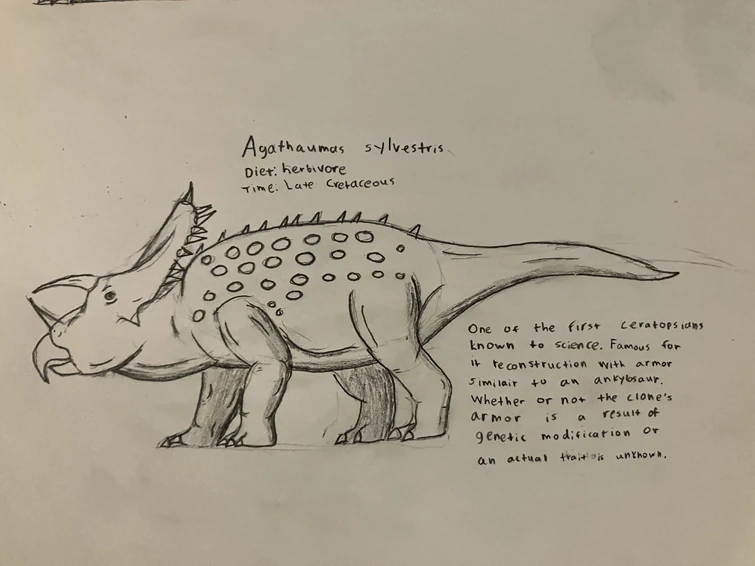 Agathaumas sylvestris
Diet: herbivore
Time: Late Cretaceous
One of the first ceratopsians
known to science. Famous for
it reconstruction with armor
similair to an ankylosaur.
Whether or not the clone's
armor is a result of
genetic modification or
an actual trait is unknown.